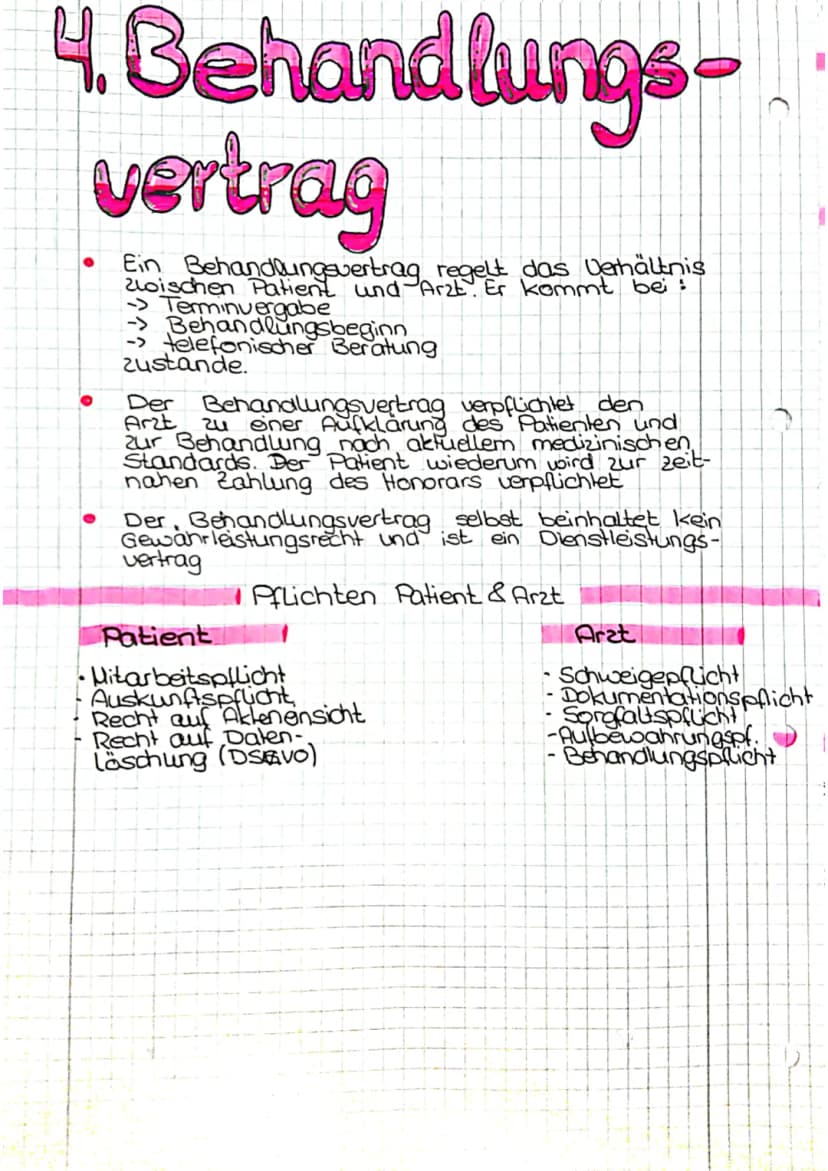 4. Behandlungs-
vertrag
• Ein Behandlungsvertrag regelt das Verhältnis
zwischen Patient und Arzt. Er kommt bei:
-> Terminvergabe
-> Behandlungsbeginn
-> telefonischer Beratung
zustande.
• Der Behandlungsvertrag verpflichtet den
Arzt zu einer Aufklärung des Patienten und
zur Behandlung nach aktuellem medizinischen
Standards. Der Patient wiederum wird zur zeit-
nahen Zahlung des Honorars verpflichtet
• Der Behandlungsvertrag selbst beinhaltet kein
Gewährleistungsrecht und ist ein Dienstleistungs-
vertrag
Pflichten Patient & Arzt
Patient
- Mitarbeitspflicht
- Auskunftspflicht
- Recht auf Aktenensicht
- Recht auf Daten-
löschung (DSGVO)
Arzt
- Schweigepflicht
- Dokumentationspflicht
- Sorgfaltspflicht
- Aufbewahrungspf.
- Behandlungspflicht